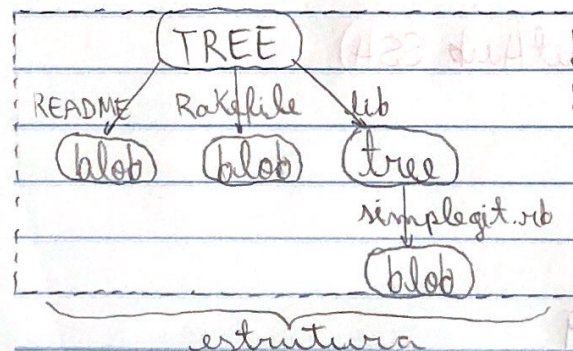 TREE
README Rakefile lib
blob blob tree
simplegit.rb
blob
estrutura